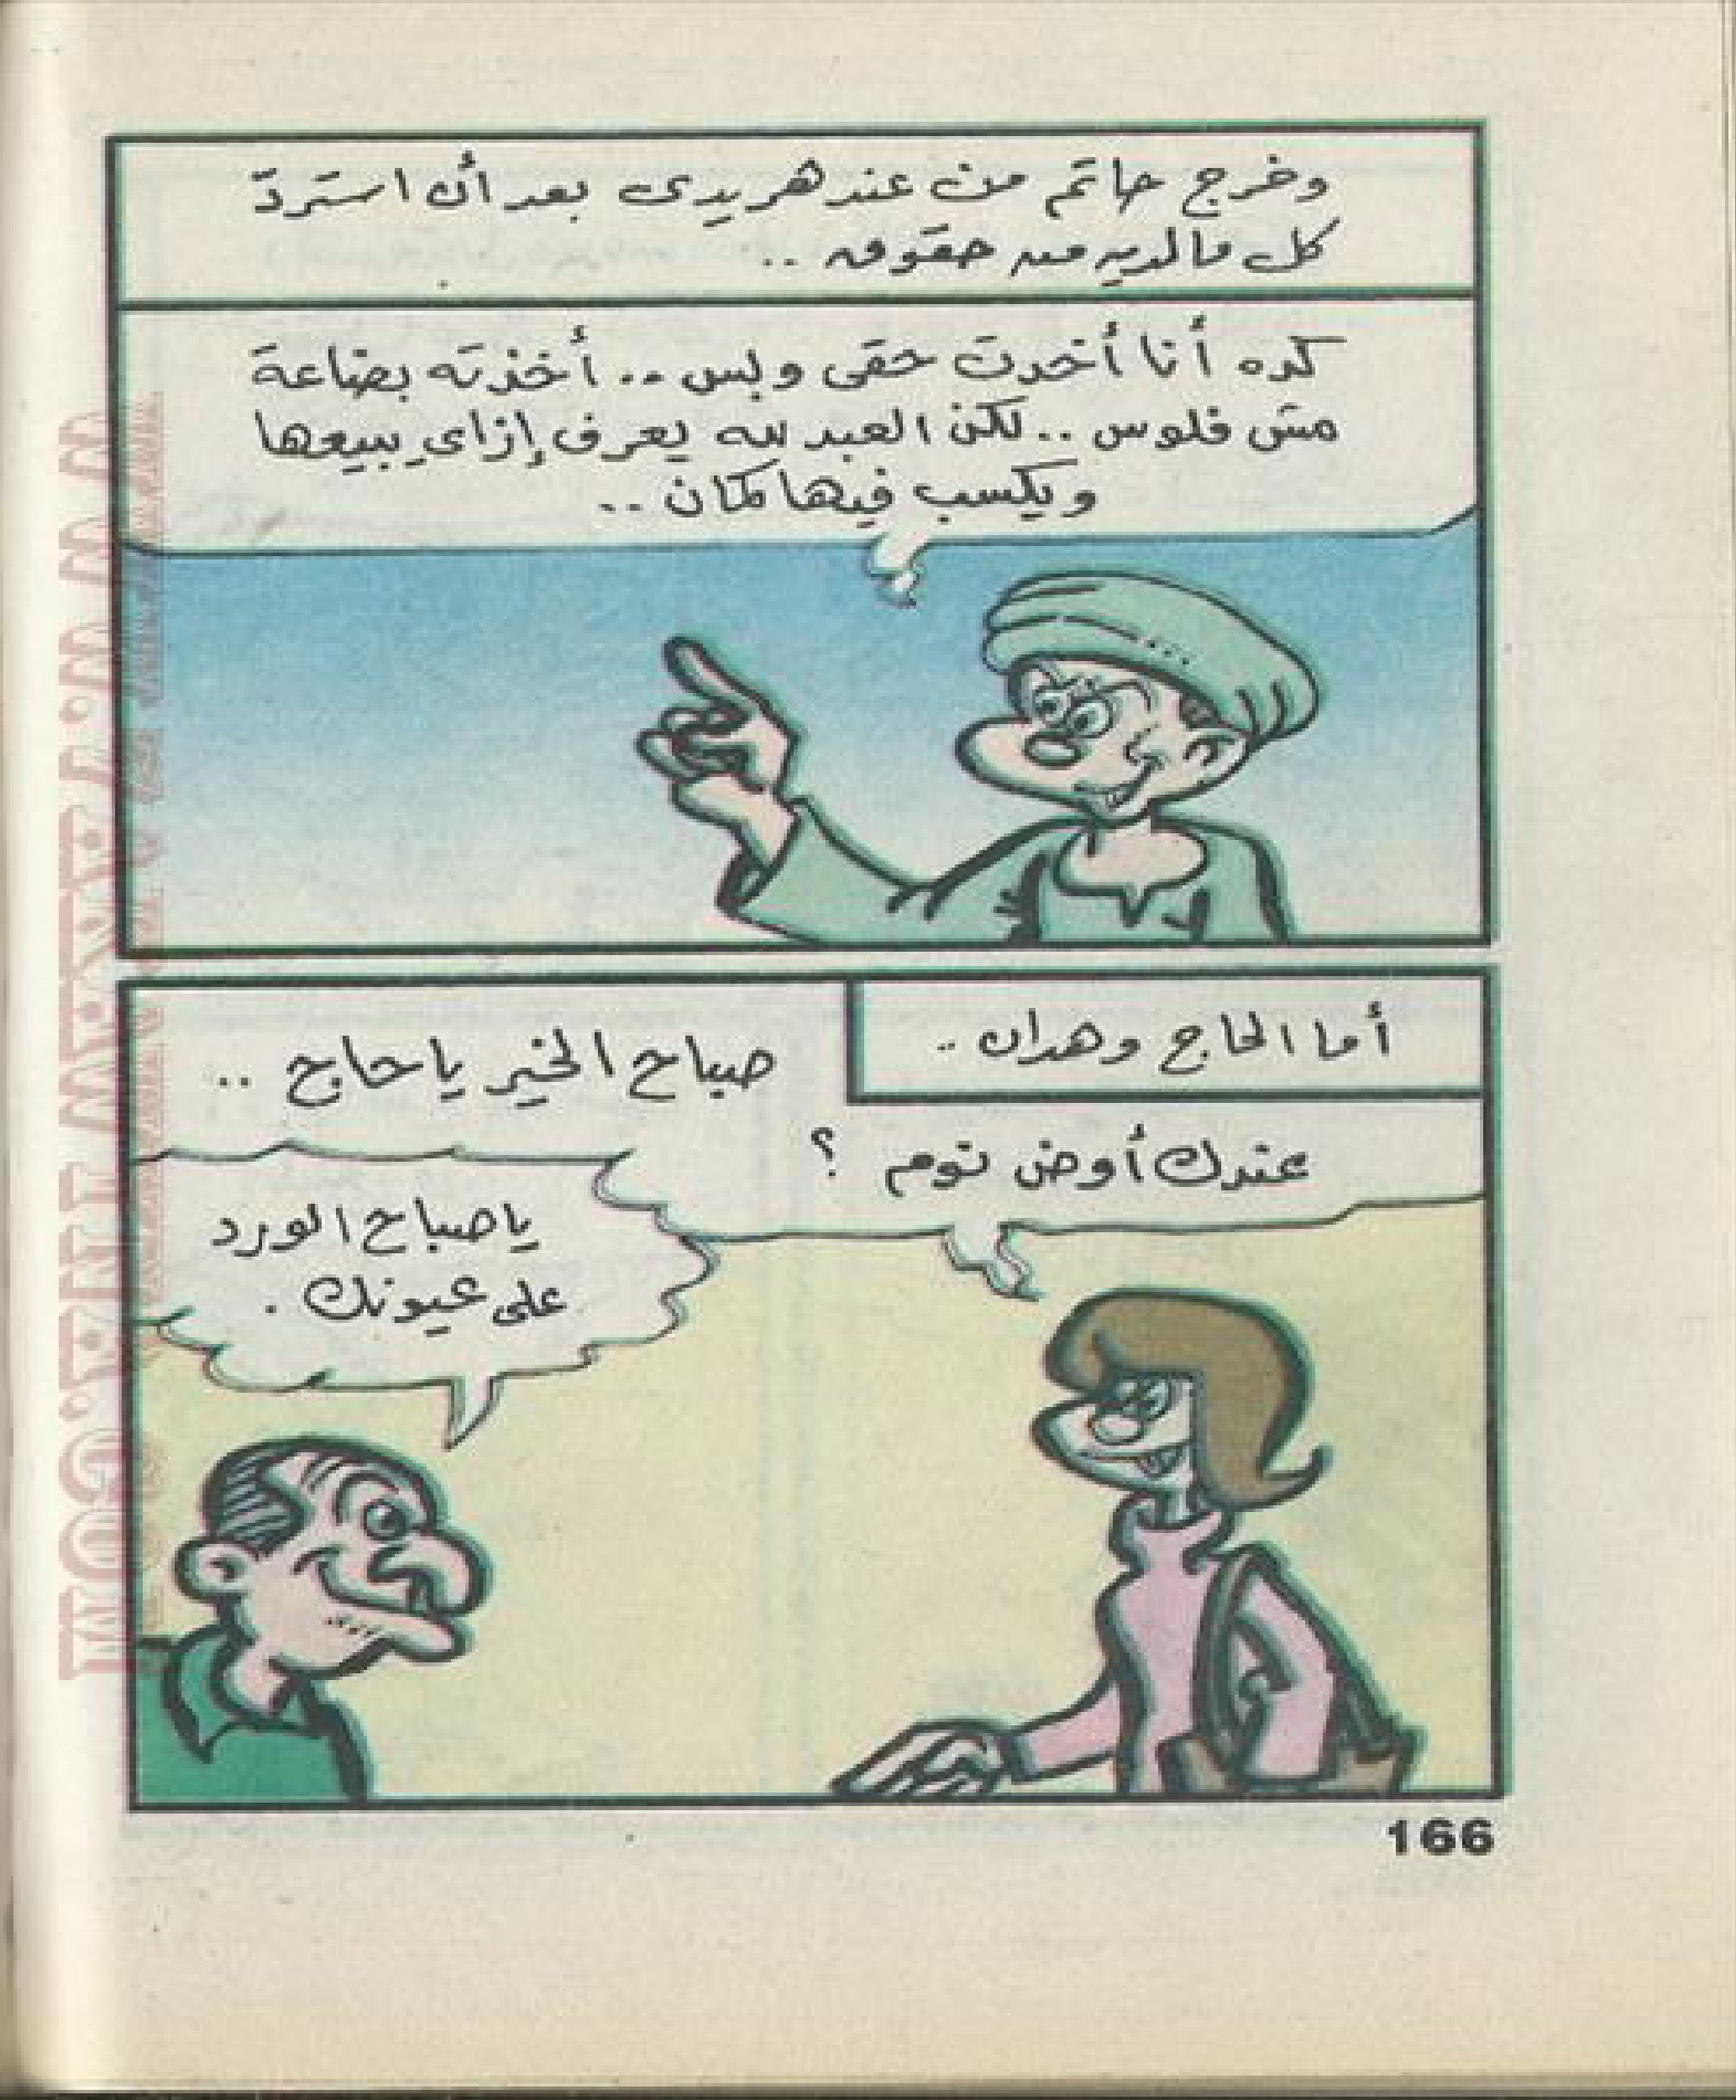 وخرج حاتم من عند هريدى بعد أن استردّ
كل ما لديه من حقوق ..
كده أنا أخدت حقى وبس .. أخذته بضاعة
مش فلوس .. لكن العبد لله يعرف إزاي يبيعها
ويكسب فيها كمان ..
أما الحاج وهدان ..
صباح الخير يا حاج ..
عندك أوض نوم ؟
يا صباح الورد
على عيونك .
166